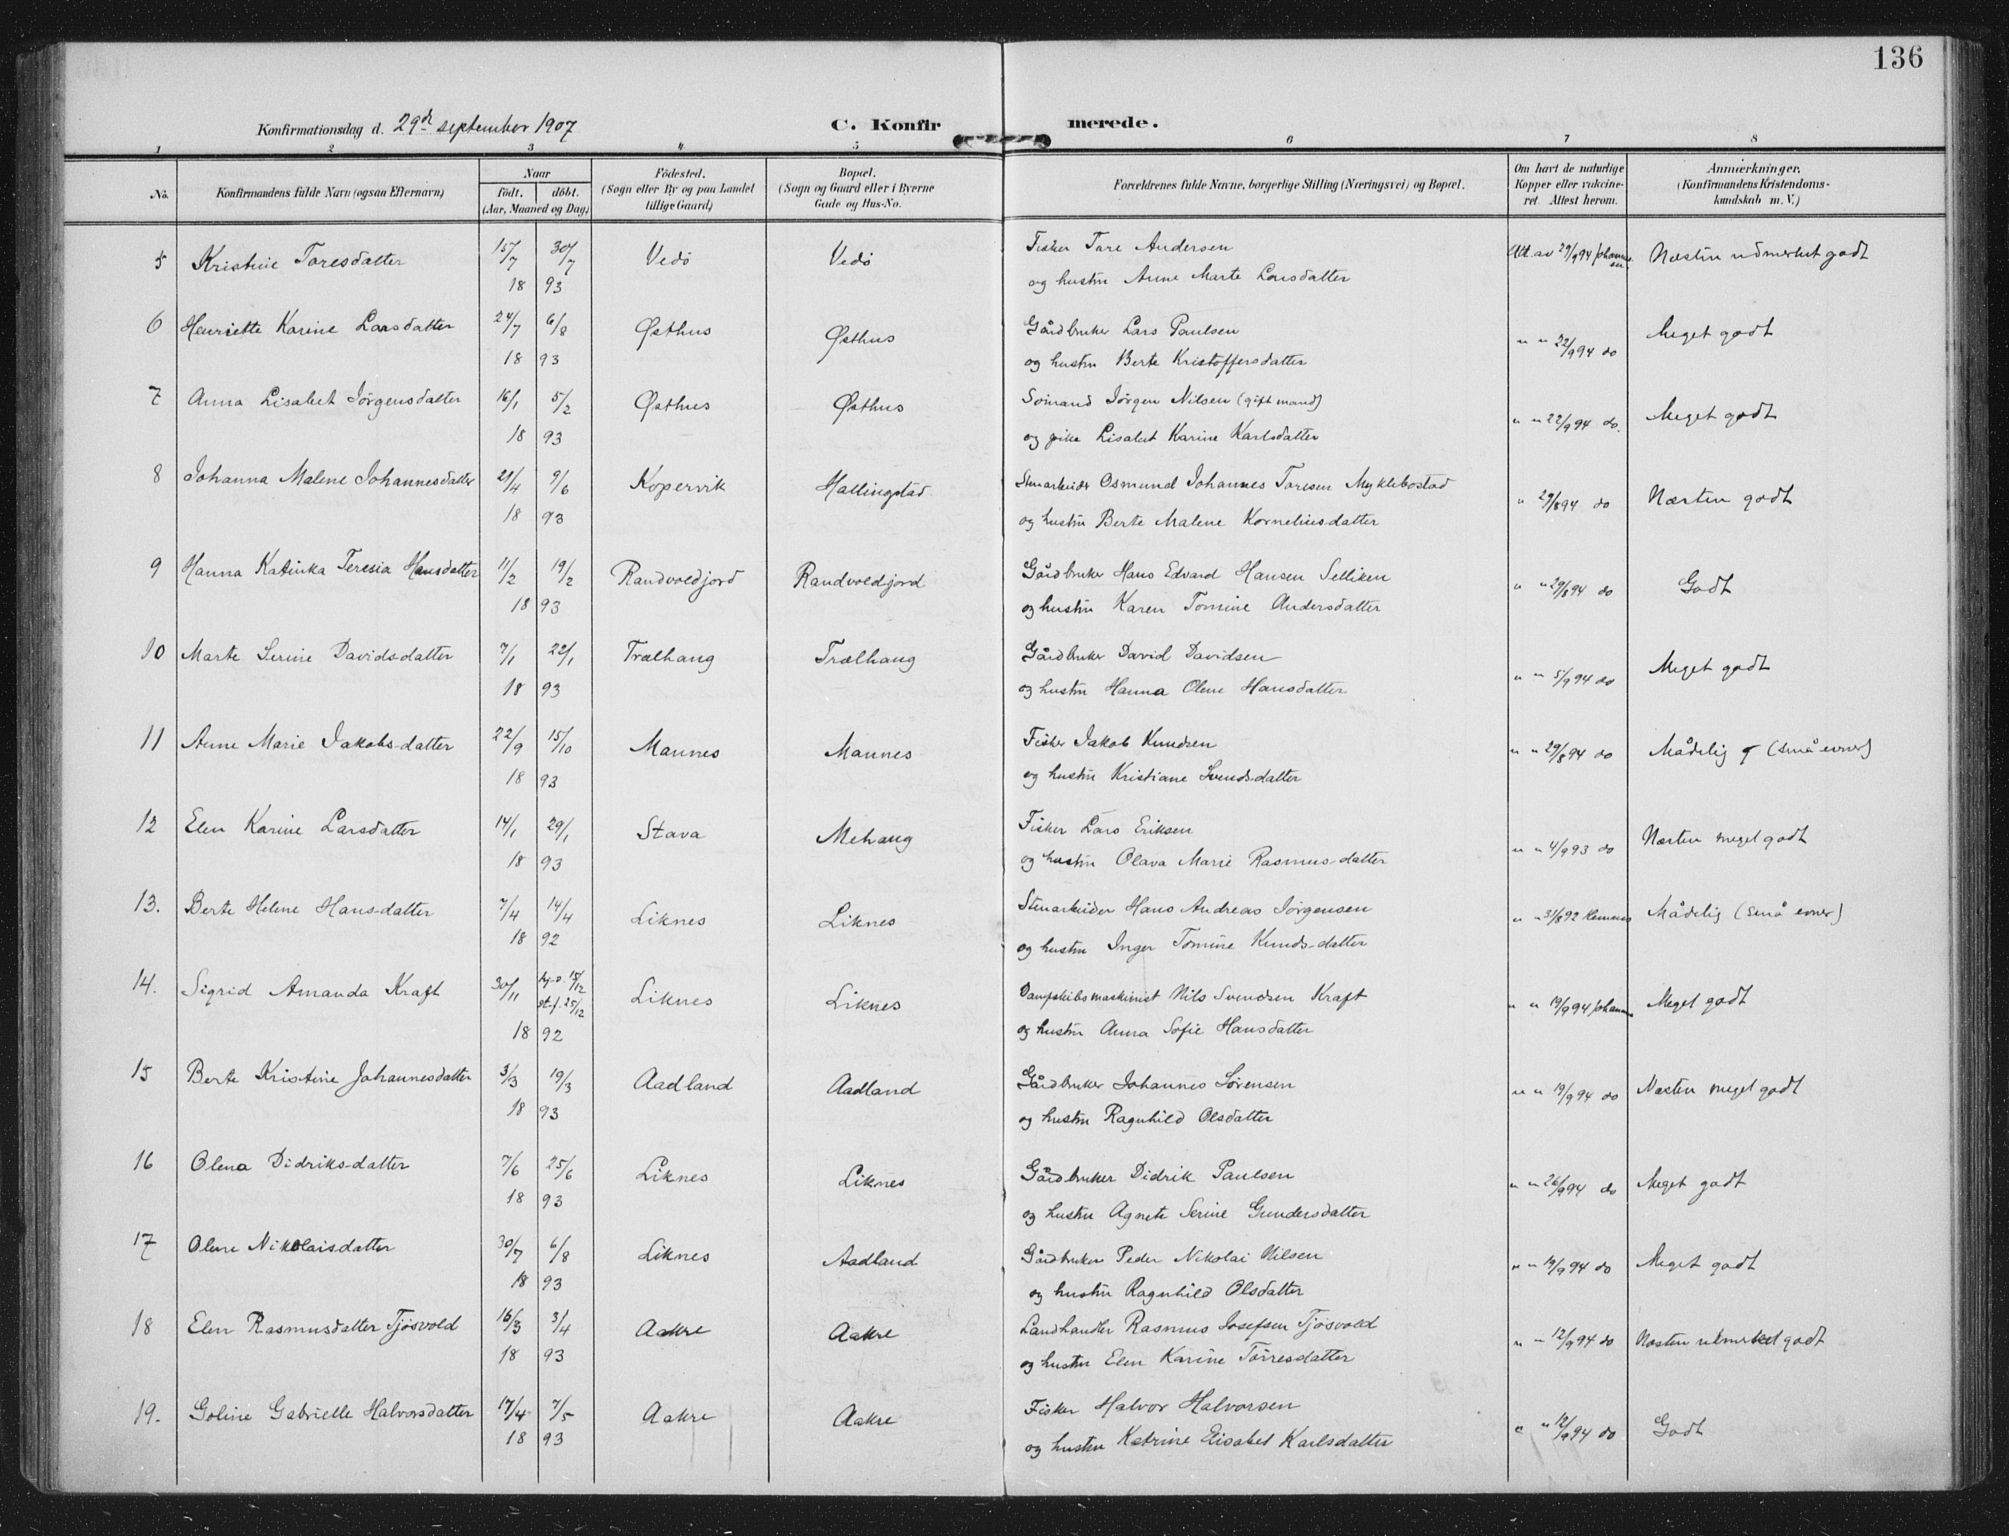 136
Konfirmationsdag d. 29de september 1907 C. Konfirmerede.
1 2 3 4 5 6 7 8
No. Konfirmandens fulde Navn (ogsaa Efternavn) Naar födt. döbt. (Aar, Maaned og Dag) Födested. (Sogn eller By og paa Landet tillige Gaard) Bopæl. (Sogn og Gaard eller i Byerne Gade og Hus-No. Forældrenes fulde Navne, borgerlige Stilling (Næringsvei) og Bopæl. Om havt de naturlige Kopper eller vakcineret. Attest herom. Anmærkninger. (Konfirmandens Kristendomskundskab m. V.)
5 Kristine Toresdatter 15/7 30/7 Vedö Vedö Fisker Tore Andersen Att. av 29/9 94 Johannessen Næsten udmerket godt
18 93 og hustru Anne Marte Larsdatter
6 Henriette Karine Larsdatter 24/7 6/8 Østhus Østhus Gårdbruker Lars Paulsen " " 22/9 94 do Meget godt
18 93 og hustru Berte Kristoffersdatter
7 Anna Lisabet Jørgensdatter 16/1 5/2 Østhus Østhus Sømand Jørgen Nilsen (gift mand) " " 22/9 94 do. Meget godt
18 93 og pike Lisabet Karine Karlsdatter
8 Johanna Malene Johannesdatter 21/4 9/6 Kopervik Hallingstad Stenarbeider Osmund Johannes Toresen Myklebostad " 29/8 94 do Næsten godt
18 93 og hustru Berte Malene Kornelius-datter
9 Hanna Katinka Teresia Hansdatter 11/2 19/2 Randvoldjord Randvoldjord Gårdbruker Hans Edvard Hansen Selliken " " 29/8 94 do Godt
18 93 og hustru Karen Tomine Andersdatter
10 Marte Serine Davids-datter 7/1 22/1 Trælhaug Trælhaug Gårdbruker David Davidsen " " 5/9 94 do Meget godt
18 93 og hustru Hanna Olene Hansdatter
11 Anne Marie Jakobs-datter 22/9 15/10 Mannes Mannes Fisker Jakob Knudsen " " 29/8 94 do Mådelig (små evner)
18 93 og hustru Kristiane Svends-datter
12 Elen Karine Larsdatter 14/1 29/1 Stava Mehaug Fisker Lars Eriksen " " 4/9 93 do Næsten meget godt
18 93 og hustru Olava Marie Rasmus-datter
13. Berte Helene Hans-datter 7/4 14/4 Liknes Liknes Stenarbeider Hans Andreas Jørgensen " " 31/8 92 Mådelig (små evner)
18 92 og hustru Inger Tomine Knuds-datter
14. Sigrid Amanda Kraft 30/11 hj.d. 15/12 st.f. 25/12 Liknes Liknes Dampskibsmaskinist Nils Svendsen Kraft " " 19/9 94 Meget godt
18 92 og hustru Anna Sofie Hansdatter
15 Berte Kristine Johannesdatter 3/3 19/3 Aadland Aadland Gårdbruker Johannes Sørensen " " 19/9 94 do Næsten meget godt
18 93 og hustru Ragnhild Olsdatter
16 Olena Didriks-datter 7/6 25/6 Liknes Liknes Gårdbruker Didrik Paulsen " " 26/9 94 do Meget godt
18 93 og hustru Agnete Serine Gundersdatter
17 Olene Nikolaisdatter 30/7 6/8 Liknes Aadland Gårdbruker Peder Nikolai Nilsen " " 19/9 94 do Meget godt
18 93 og hustru Ragnhild Olsdatter
18 Elen Rasmusdatter Tjösvold 16/3 3/4 Aakre Aakre Landhandler Rasmus Josefsen Tjösvold " " 12/9 94 do Næsten udmerket godt
18 93 og hustru Elen Karine Tørresdatter
19. Goline Gabrielle Halvorsdatter 17/4 7/5 Aakre Aakre Fisker Halvor Halvorsen " " 12/9 94 do Godt
18 93 og hustru Katrine Elisabet Karlsdatter